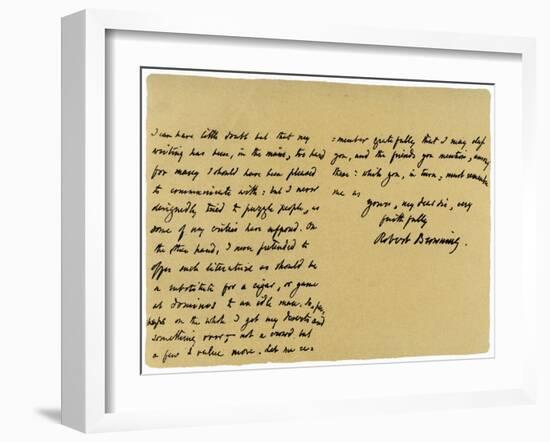 I can have little doubt but that my
writing has been, in the main, too hard
for many I should have been pleased
to communicate with: but I never
designedly tried to puzzle people, as
some of my critics have supposed. On
the other hand, I never pretended to
offer such literature as should be
a substitute for a cigar, or game
at dominos to an idle man. So, per-
haps on the whole I get my deserts and
something over, – not a crowd but
a few I value more. Let me re-
=member gratefully that I may class
you, and the friends you mention, among
them: while you, in turn, must remember
me as
yours, my dear Sir, very
faithfully
Robert Browning.